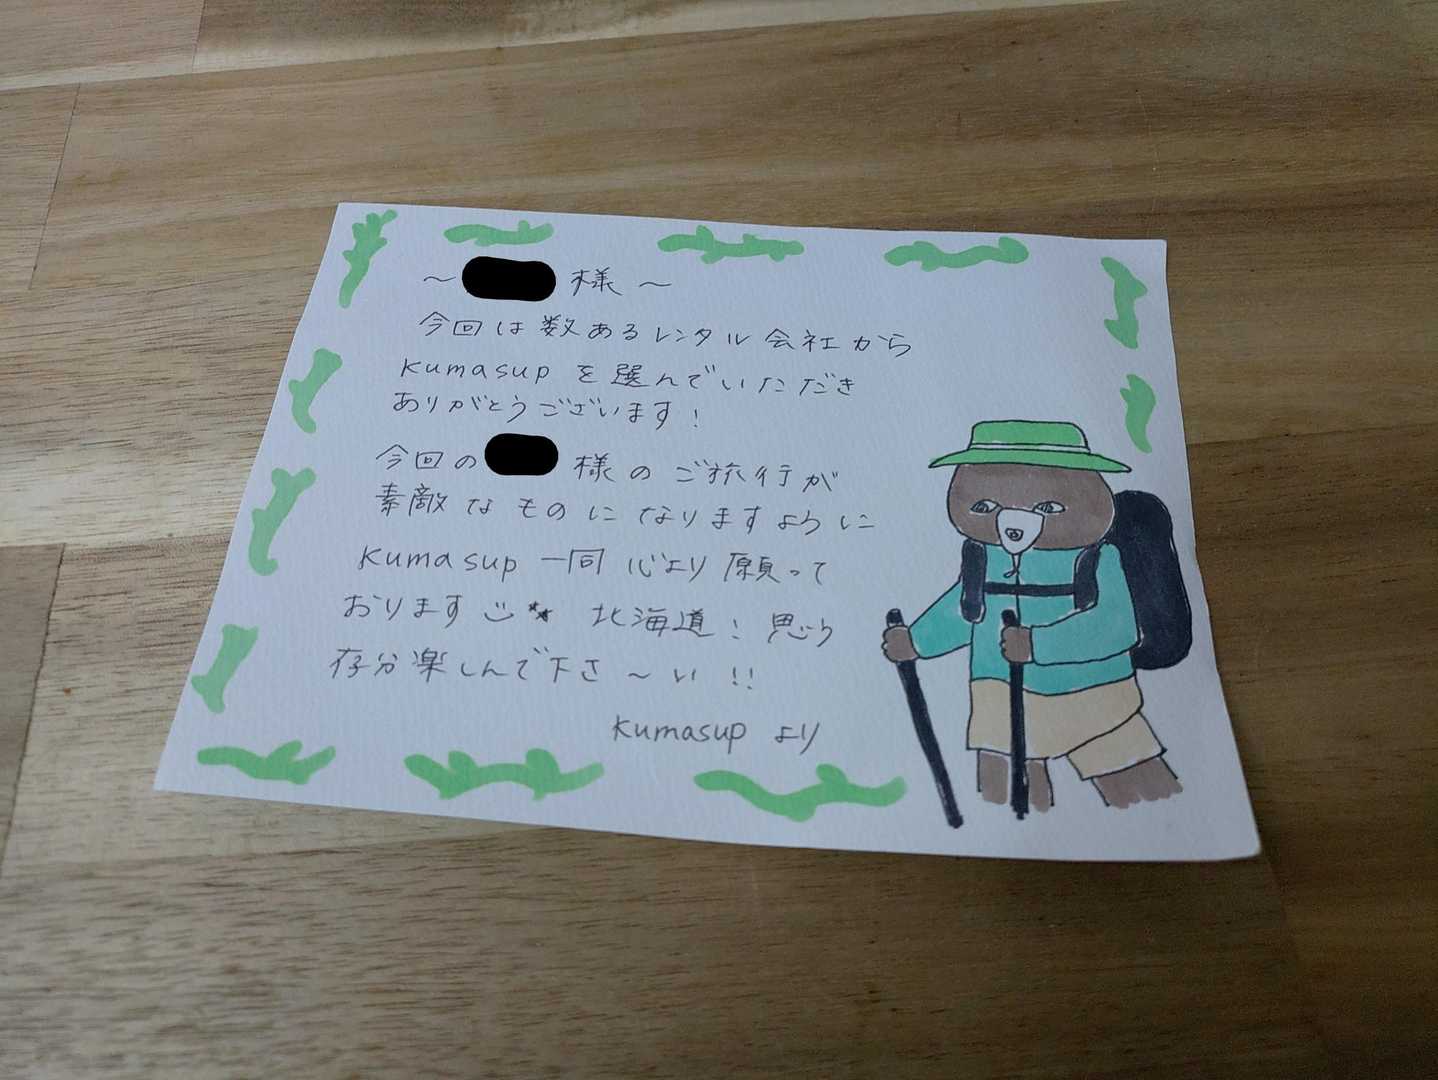 ～ 様 ～
今回は数あるレンタル会社から
kumasup を選んでいただき
ありがとうございます!
今回の 様のご旅行が
素敵なものになりますように
kumasup 一同 心より願って
おります 北海道! 思う
存分楽しんで下さ～い!!
kumasup より